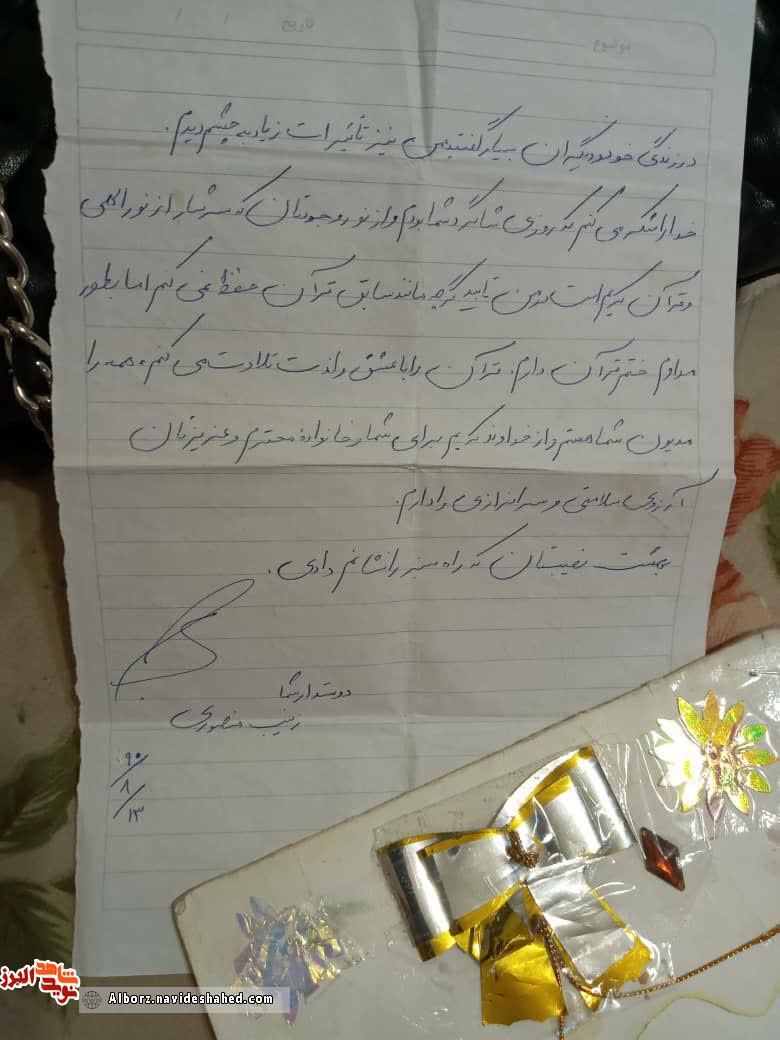 در زندگی خود و دیگران بسیار گفتید من نیز تأثیرات زیاد به چشم دیدم.
خدا را شکر می کنم که روزی شاگرد شما بودم و از نور وجودتان که سرشار از نور الهی
و قرآن کریم است در من تابید گرچه مانند سابق قرآن حفظ نمی کنم اما بطور
مداوم ختم قرآن دارم. قرآن را با عشق و لذت تلاوت می کنم و همه را
مدیون شما هستم و از خداوند کریم برای شما و خانواده محترم و عزیزتان
آرزوی سلامتی و سرافرازی را دارم.
بهشت نصیبتان که راه سبز را نشانم دادی.
دوستدار شما
زینب منصوری
۹۰/۸/۱۳
نوید شاهد البرز
Alborz.navideshahed.com